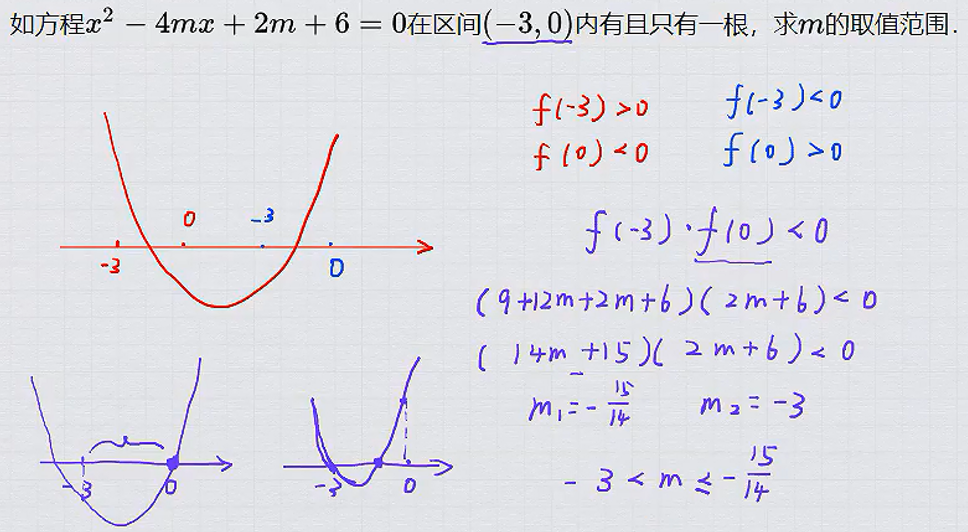 如方程x² − 4mx + 2m + 6 = 0在区间(−3, 0)内有且只有一根，求m的取值范围.
f(-3)>0
f(0)<0
f(-3)<0
f(0)>0
0
-3
-3
0
f(-3)·f(0)<0
(9+12m+2m+6)(2m+6)<0
(14m+15)(2m+6)<0
m₁=-15/14 m₂=-3
-3<m≤-15/14
-3 0
-3 0